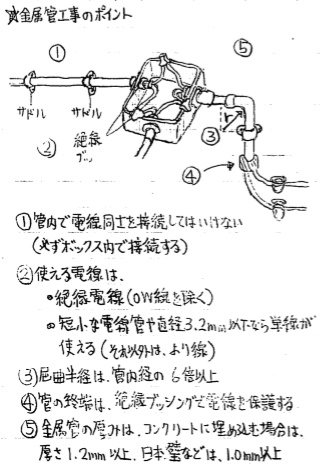 ☆金属管工事のポイント
①
⑤
サドル
サドル
絶縁
ブッ
②
r
③
④
①管内で電線同士を接続してはいけない
(必ずボックス内で接続する)
②使える電線は、
•絶縁電線(OW線を除く)
•短小な電線管や直径3.2mm以下なら単線が
使える(それ以外は、より線)
③屈曲半径は、管内経の6倍以上
④管の終端は、絶縁ブッシングで電線を保護する
⑤金属管の厚みは、コンクリートに埋め込む場合は、
厚さ1.2mm以上、日本壁などは、1.0mm以上